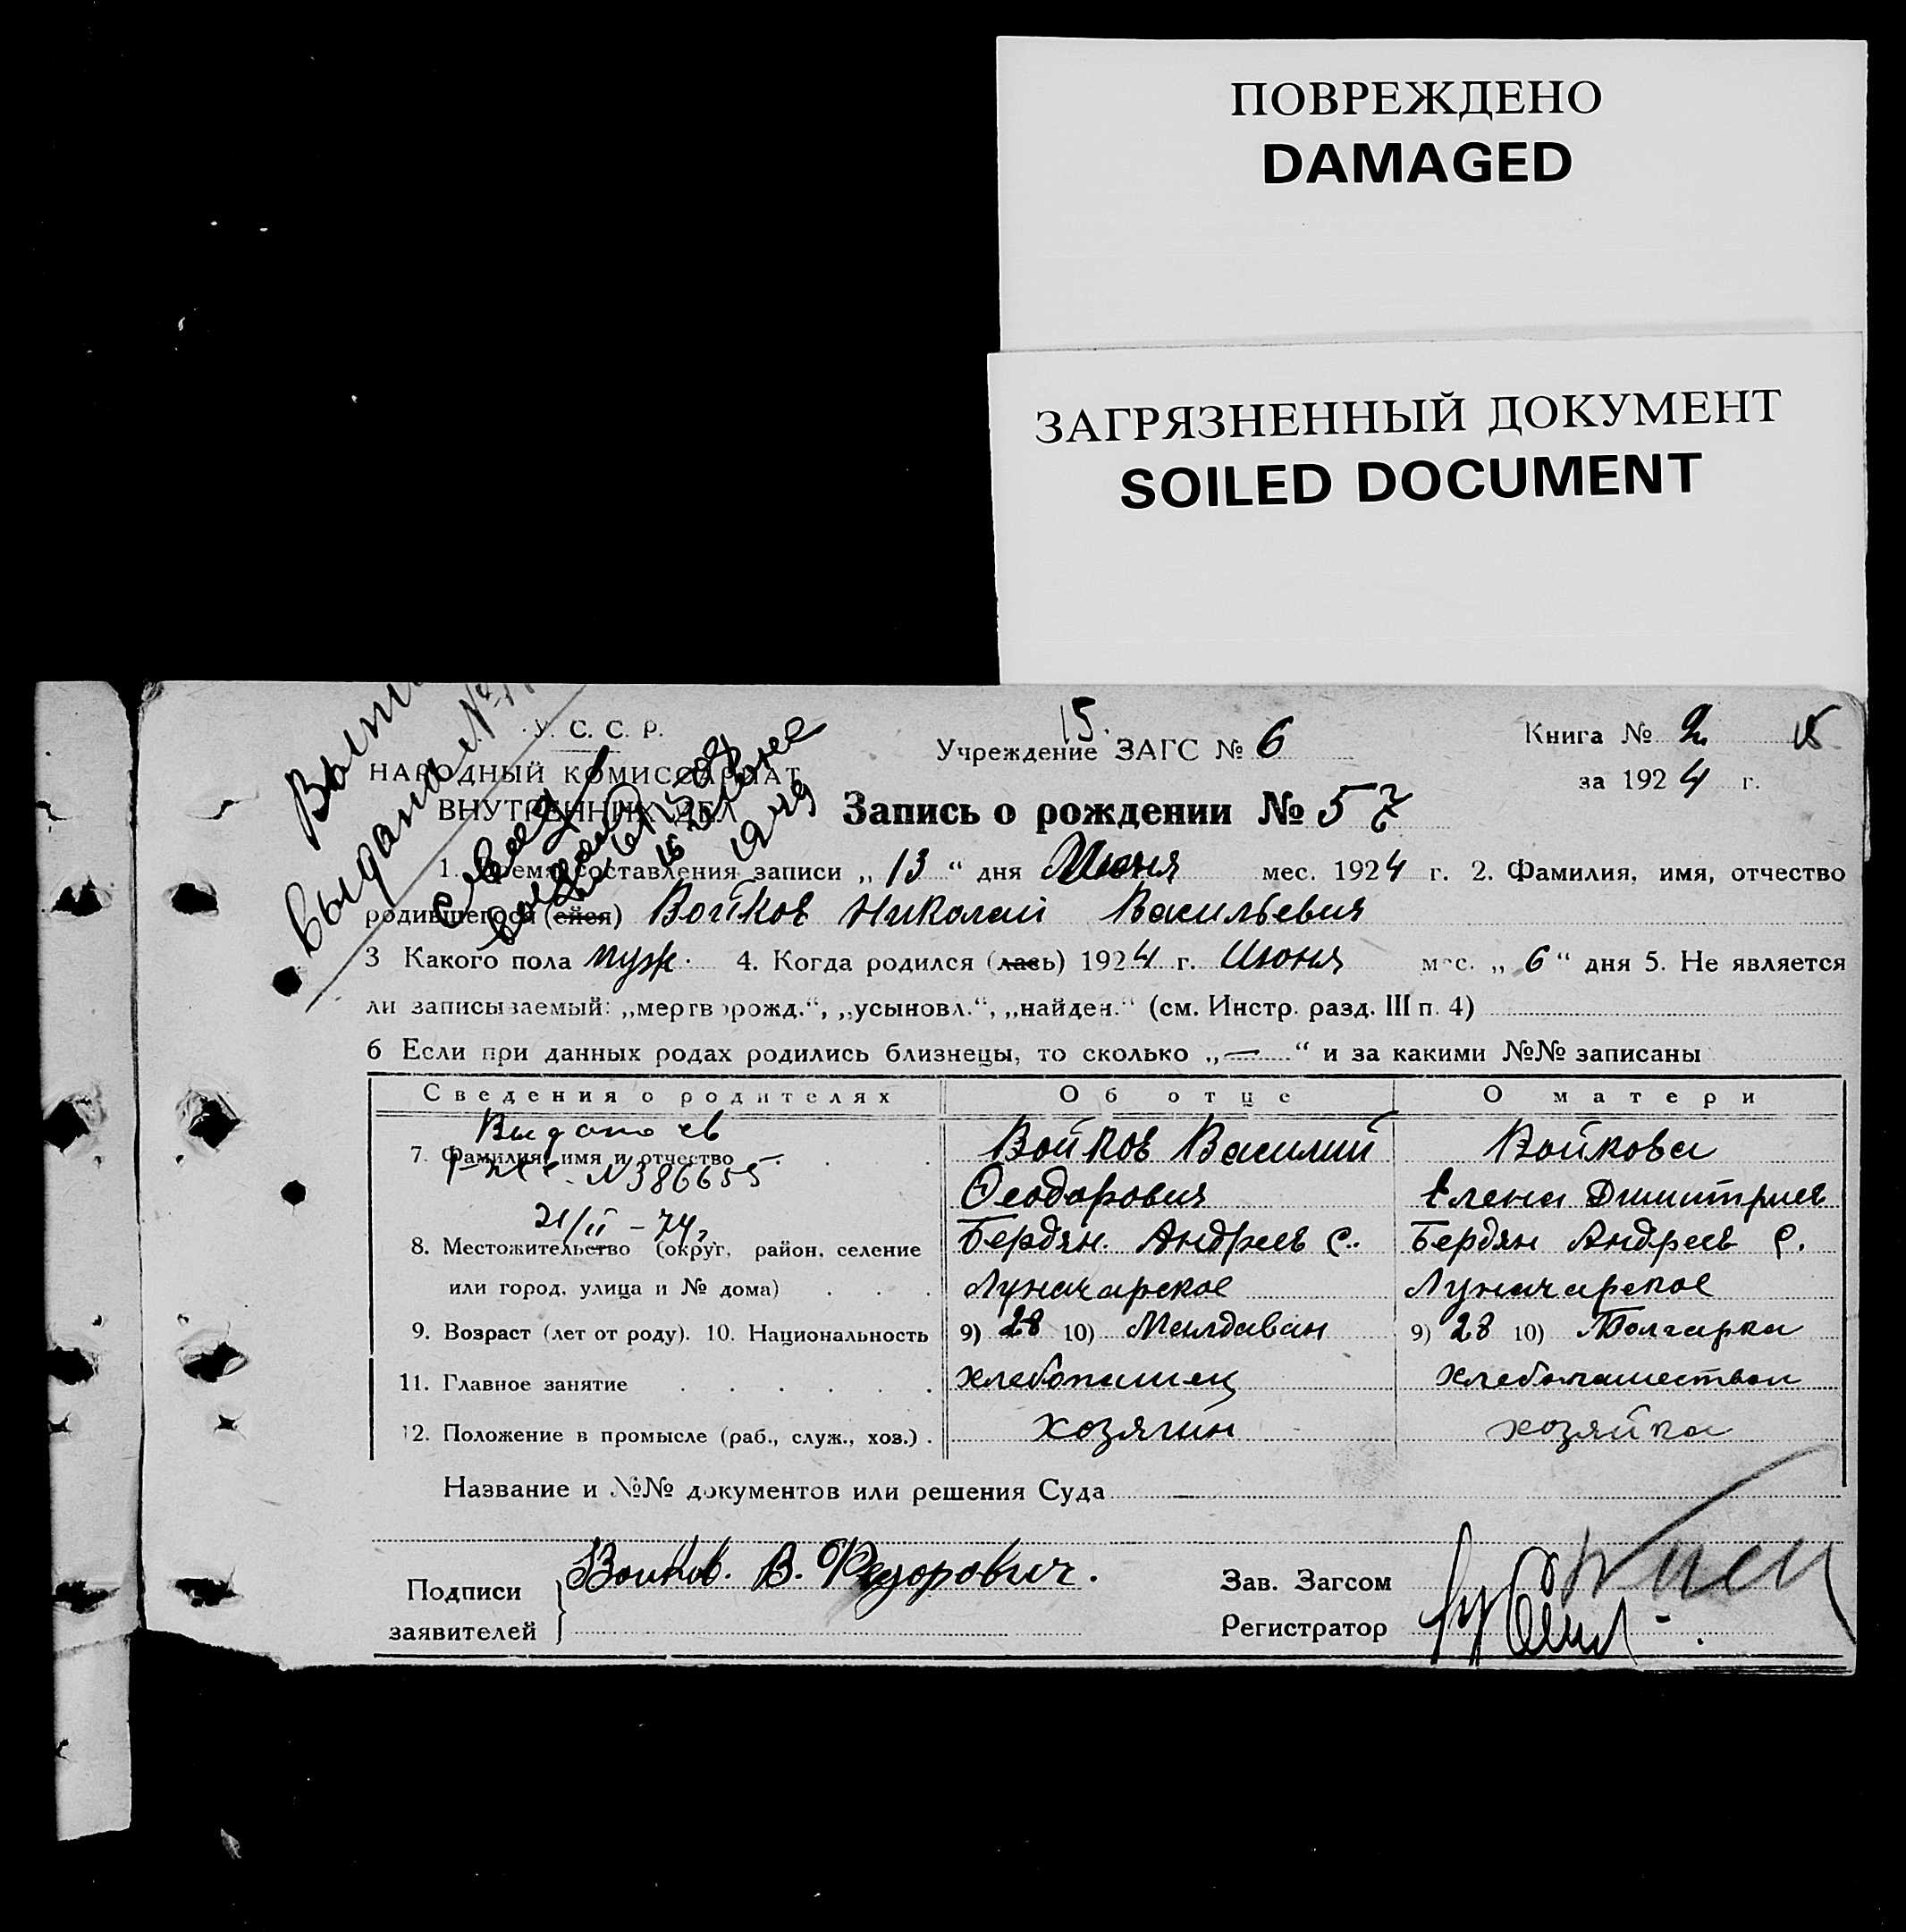 ПОВРЕЖДЕНО
DAMAGED
ЗАГРЯЗНЕННЫЙ ДОКУМЕНТ
SOILED DOCUMENT
У. С. С. Р.
НАРОДНЫЙ КОМИССАРИАТ
ВНУТРЕННИХ ДЕЛ
15.
Учреждение ЗАГС № 6
Книга № 2
за 1924 г.
Запись о рождении № 57
1. Время составления записи „ 13 “ дня Июня мес. 1924 г. 2. Фамилия, имя, отчество
родившегося (ейся) Войков Николай Васильевич
3 Какого пола муж. 4. Когда родился (лась) 1924 г. Июня мес. „ 6 “ дня 5. Не является
ли записываемый: „мертворожд.“, „усыновл.“, „найден.“ (см. Инстр. разд. III п. 4)
6 Если при данных родах родились близнецы, то сколько „—“ и за какими №№ записаны
Сведения о родителях Об отце О матери
Выдано св
7. Фамилия, имя и отчество Войков Василий Войкова
N 386655
Феодорович Елена Дмитриев
21/II – 74
8. Местожительство (округ, район, селение Бердян. Андреев с. Бердян Андреев с.
или город, улица и № дома) Луначарское Луначарское
9. Возраст (лет от роду). 10. Национальность 9) 28 10) Малдаван 9) 28 10) Болгарка
11. Главное занятие хлебопашец хлебопашество
12. Положение в промысле (раб., служ., хоз.) хозяин хозяйка
Название и №№ документов или решения Суда —
Подписи Войков. В. Федорович.
заявителей
Зав. Загсом
Регистратор